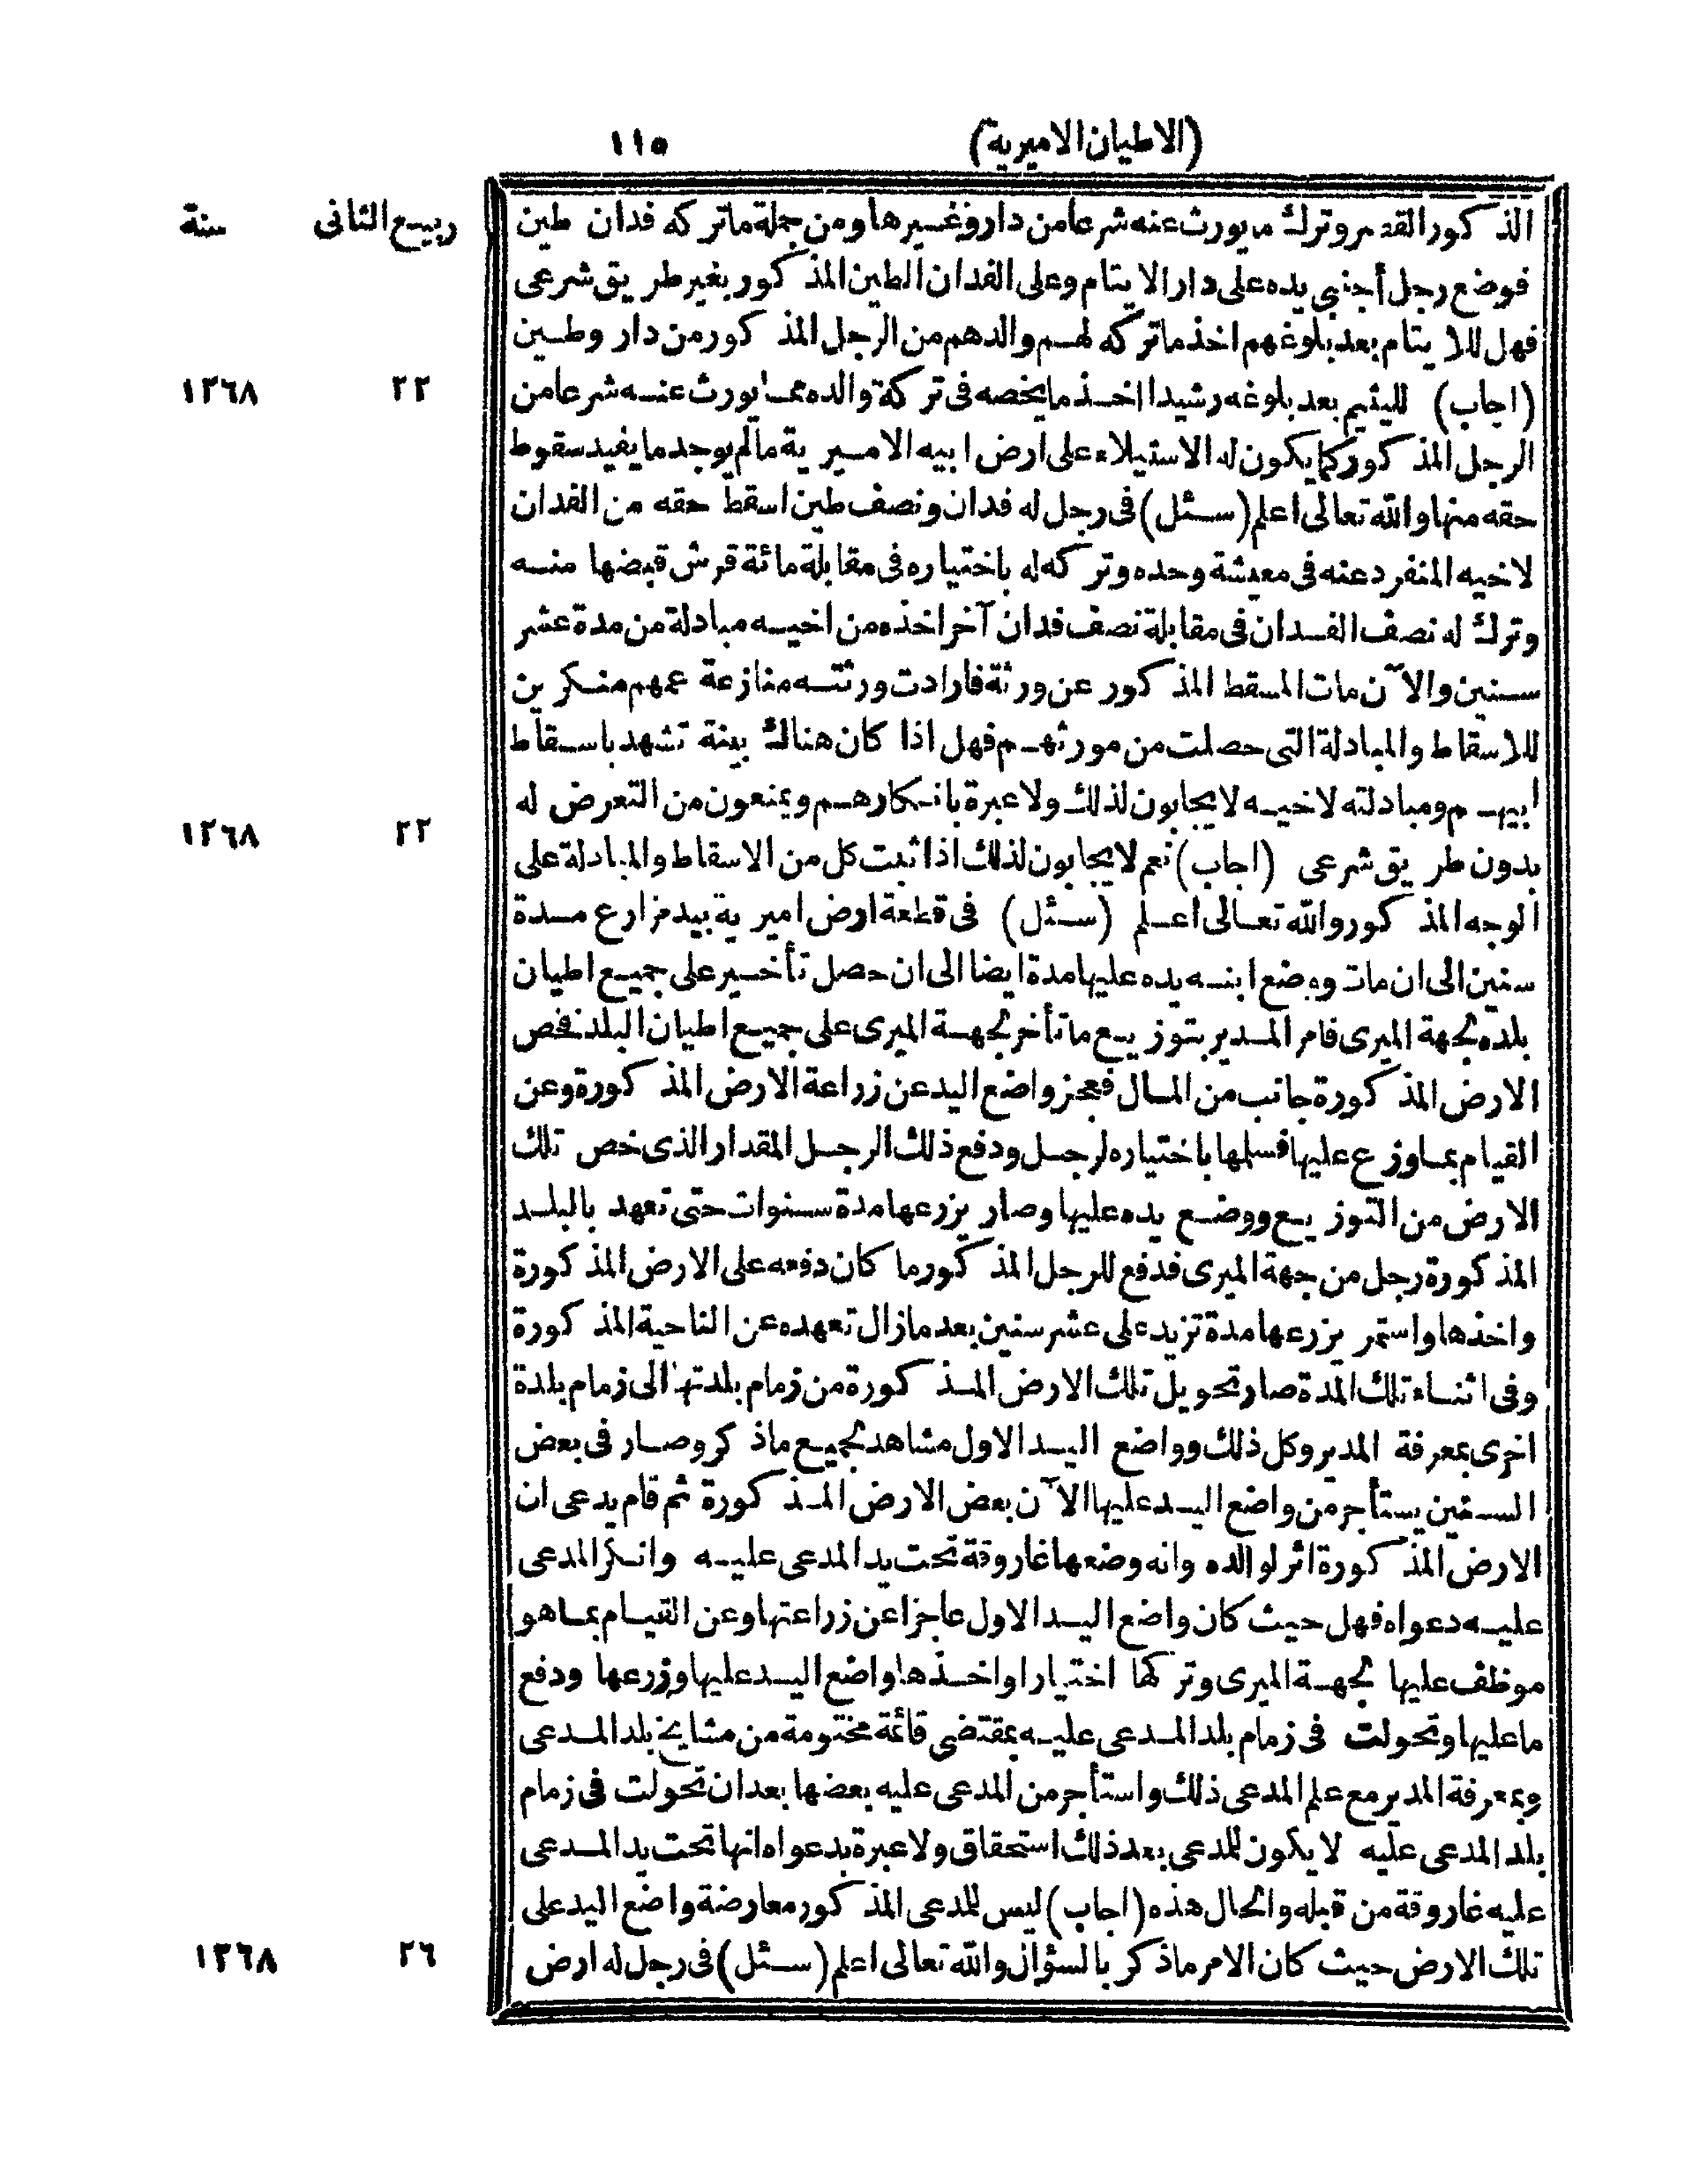 (الاطيان الاميرية) ١١٥
ربيع الثانى سنة
الذكور القصر وترك ما يورث عنه شرعا من دار وغيرها ومن جملة ما تركه فدان طين
فوضع رجل أجنبى يده على دار الايتام وعلى الفدان الطين المذكور بغير طريق شرعى
فهل للايتام بعد بلوغهم اخذ ما تركه لهم والدهم من الرجل المذكور من دار وطين
(اجاب) لليتيم بعد بلوغه رشيدا اخذ ما يخصه فى تركة والده مما يورث عنه شرعا من ٢٢ ١٢٦٨
الرجل المذكور كما يكون له الاستيلاء على ارض ابيه الاميرية ما لم يوجد ما يفيد سقوط
حقه منها والله تعالى اعلم (سئل) فى رجل له فدان ونصف طين اسقط حقه من الفدان
لاخيه المنفرد عنه فى معيشة وحده وتركه له باختياره فى مقابلة مائة قرش قبضها منه
وترك له نصف الفدان فى مقابلة نصف فدان آخر اخذه من اخيه مبادلة من مدة عشر
سنين والآن مات المسقط المذكور عن ورثة فارادت ورثته منازعة عمهم منكرين
للاسقاط والمبادلة التى حصلت من مورثهم فهل اذا كان هناك بينة تشهد باسقاط
ابيهم ومبادلته لاخيه لا يجابون لذلك ولا عبرة بانكارهم ويمنعون من التعرض له
بدون طريق شرعى (اجاب) نعم لا يجابون لذلك اذا ثبت كل من الاسقاط والمبادلة على ٢٢ ١٢٦٨
الوجه المذكور والله تعالى اعلم (سئل) فى قطعة ارض اميرية بيد مزارع مدة
سنين الى ان مات ووضع ابنه يده عليها مدة ايضا الى ان حصل تأخير على جميع اطيان
بلده لجهة الميرى فامر المدير بتوزيع ما تأخر لجهة الميرى على جميع اطيان البلد فخص
الارض المذكورة جانب من المال فعجز واضع اليد عن زراعة الارض المذكورة وعن
القيام بما وزع عليها فسلمها باختياره لرجل ودفع ذلك الرجل المقدار الذى خص تلك
الارض من التوزيع ووضع يده عليها وصار يزرعها مدة سنوات حتى تعهد بالبلد
المذكورة رجل من جهة الميرى فدفع للرجل المذكور ما كان دفعه على الارض المذكورة
واخذها واستمر يزرعها مدة تزيد على عشر سنين بعد ما زال تعهده عن الناحية المذكورة
وفى اثناء تلك المدة صار تحويل تلك الارض المذكورة من زمام بلدتها الى زمام بلدة
اخرى بمعرفة المدير وكل ذلك وواضع اليد الاول مشاهد لجميع ما ذكر وصار فى بعض
السنين يستأجر من واضع اليد عليها الآن بعض الارض المذكورة ثم قام يدعى ان
الارض المذكورة اثر لوالده وانه وضعها غاروقة تحت يد المدعى عليه وانكر المدعى
عليه دعواه فهل حيث كان واضع اليد الاول عاجزا عن زراعتها وعن القيام بما هو
موظف عليها لجهة الميرى وتركها اختيارا واخذها واضع اليد عليها وزرعها ودفع
ما عليها وتحولت فى زمام بلد المدعى عليه بمقتضى قائمة مختومة من مشايخ بلد المدعى
وبمعرفة المدير مع علم المدعى ذلك واستأجر من المدعى عليه بعضها بعد ان تحولت فى زمام
بلد المدعى عليه لا يكون للمدعى بعد ذلك استحقاق ولا عبرة بدعواه انها تحت يد المدعى
عليه غاروقة من قبله والحال هذه (اجاب) ليس للمدعى المذكور معارضة واضع اليد على
تلك الارض حيث كان الامر ما ذكر بالسؤال والله تعالى اعلم (سئل) فى رجل له ارض ٢٦ ١٢٦٨